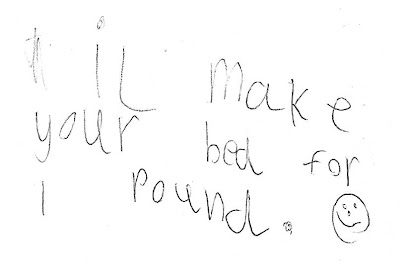 iL make
your bed for
1 pound.